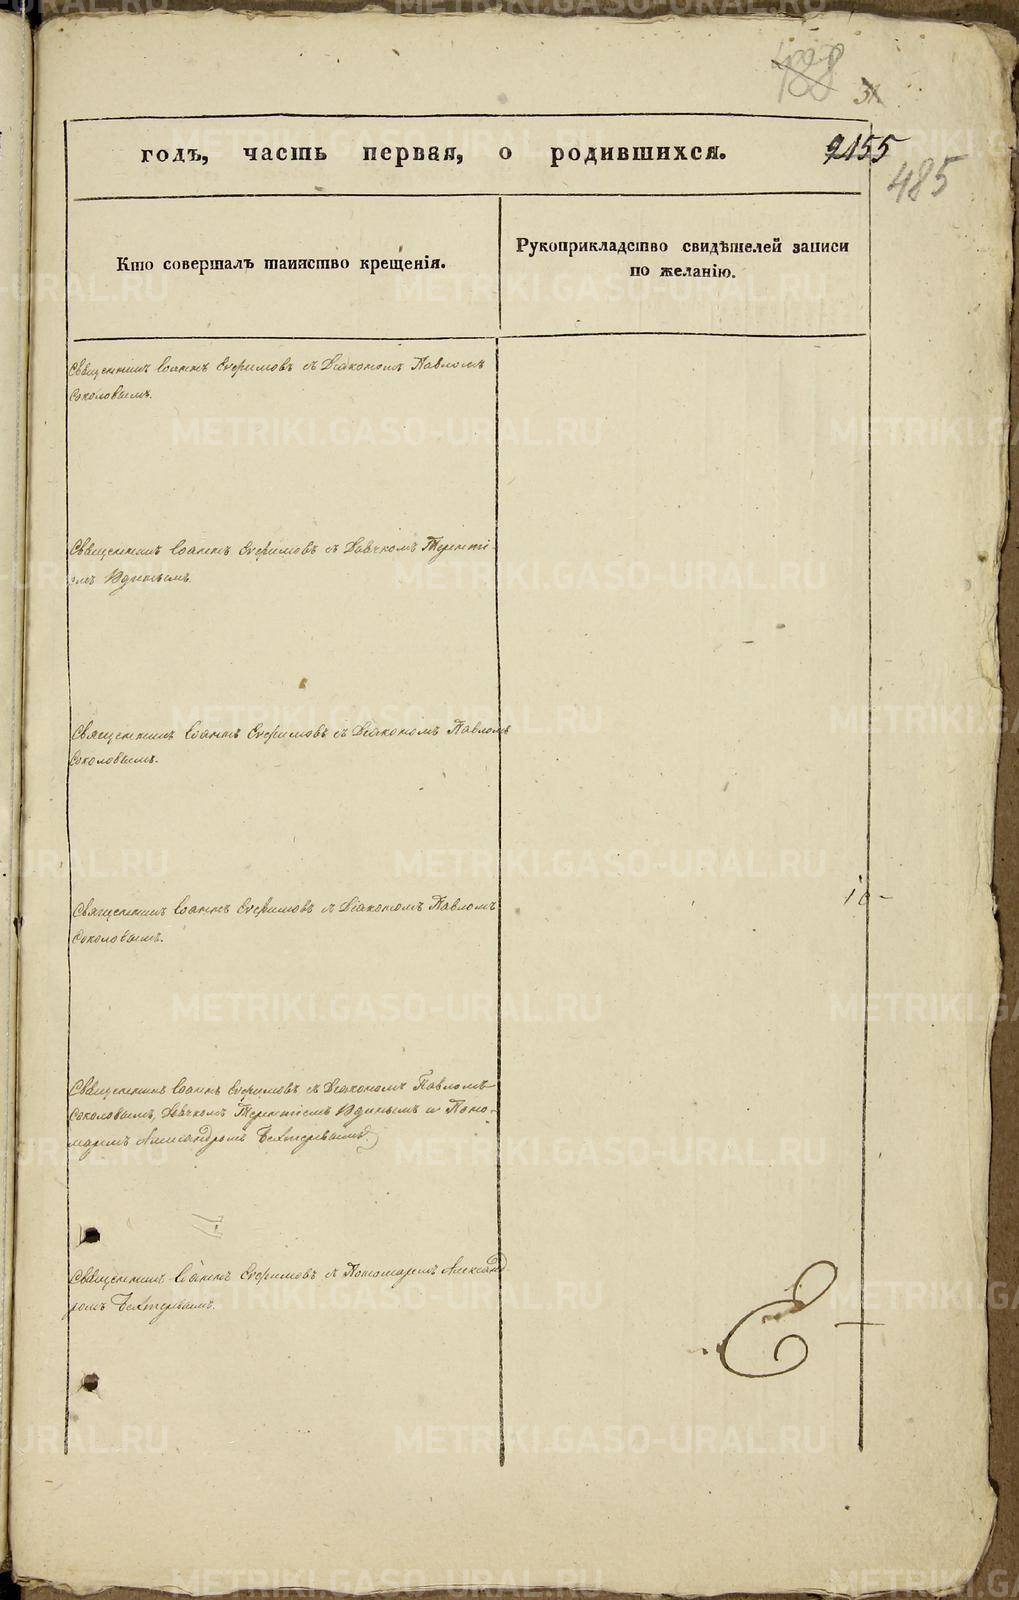 488
31
годъ, часть первая, о родившихся.
2155
485
Кто совершалъ таинство крещенія.
Рукоприкладство свидѣтелей записи
по желанію.
Священникъ Іоаннъ Ефимовъ съ Діакономъ Павломъ
Соколовымъ.
Священникъ Іоаннъ Ефимовъ съ Дьячкомъ Теренті-
емъ
Священникъ Іоаннъ Ефимовъ съ Діакономъ Павломъ
Соколовымъ.
Священникъ Іоаннъ Ефимовъ съ Діакономъ Павломъ
Соколовымъ.
Священникъ Іоаннъ Ефимовъ съ Діакономъ Павломъ
Соколовымъ, Дьячкомъ Терентіемъ и Поно-
маремъ Александромъ Бехтеревымъ.
Священникъ Іоаннъ Ефимовъ съ Пономаремъ Александ-
ромъ Бехтеревымъ.
METRIKI.GASO-URAL.RU